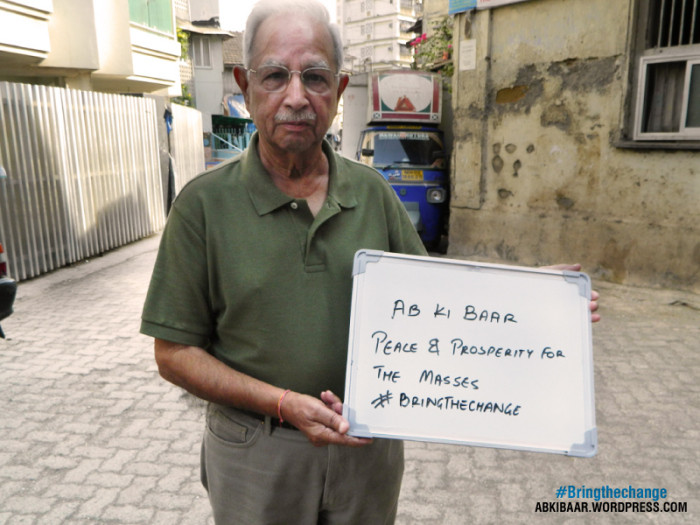 AB KI BAAR
PEACE & PROSPERITY FOR
THE MASSES
#BRINGTHECHANGE
#Bringthechange
ABKIBAAR.WORDPRESS.COM